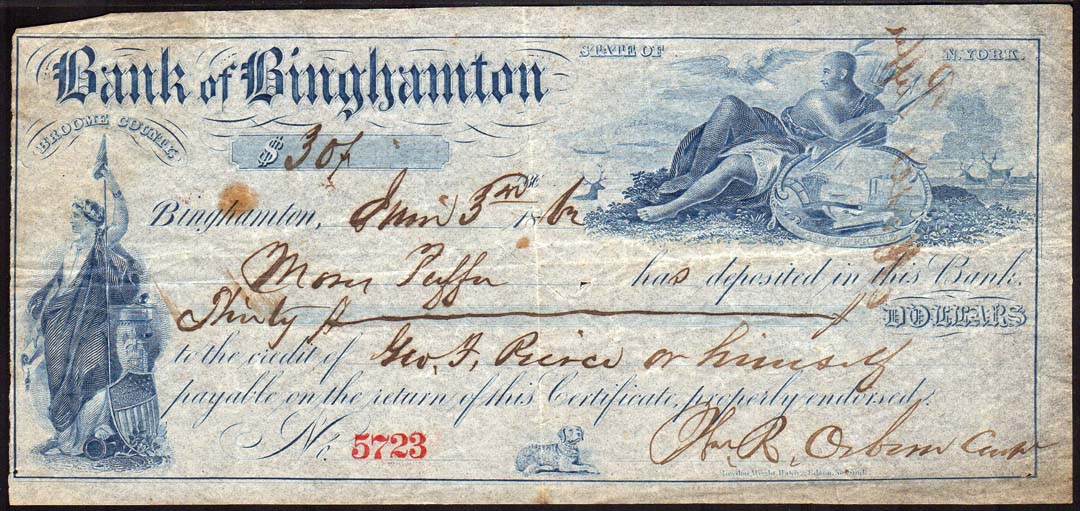 Bank of Binghamton
STATE OF N. YORK.
BROOME COUNTY
$ 30
Binghamton, 3rd 1862
Moses has deposited in this Bank
Thirty DOLLARS
to the credit of Geo. F. Pierce or himself
payable on the return of this Certificate, properly endorsed.
No. 5723
Wm R. Osborn Cash